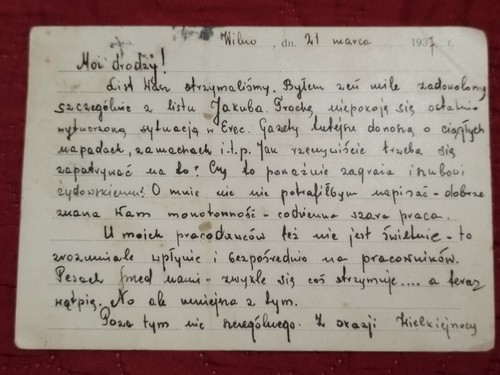 Wilno, dn. 21 marca 1937 r.
Moi drodzy!
List Wasz otrzymaliśmy. Byłem zeń mile zadowolony
szczególnie z listu Jakuba. Trochę niepokoję się ostatnio
wytworzoną sytuacją w Erec. Gazety tutejsze donoszą o ciągłych
napadach, zamachach i.t.p. Jak rzeczywiście trzeba się
zapatrywać na to? Czy to poważnie zagraża
żydowskiemu? O mnie nic nie potrafiłbym napisać - dobrze
znana Wam monotonność - codzienna szara praca.
U moich pracodawców też nie jest świetnie - to
zrozumiałe wpłynie i bezpośrednio na pracowników.
Pesach przed nami - zwykle się coś otrzymuje.... a teraz
wątpię. No ale mniejsza z tym.
Poza tym nic szczególnego. Z okazji Wielkiejnocy